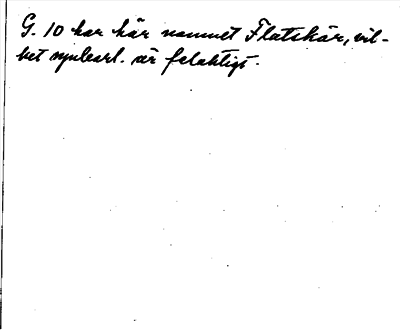 G. 10 har här namnet Flatskär, vil-
ket synbarl. är felaktigt.